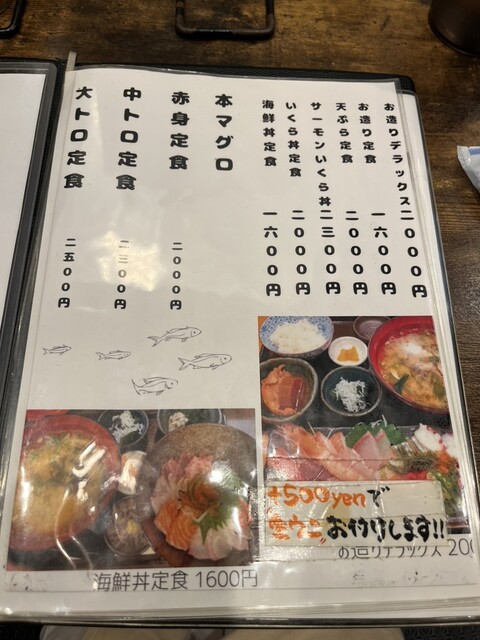 お造りデラックス二〇〇〇円
お造り定食 一六〇〇円
天ぷら定食 二〇〇〇円
サーモンいくら丼二三〇〇円
いくら丼定食 二〇〇〇円
海鮮丼定食 一六〇〇円
本マグロ
赤身定食 二〇〇〇円
中トロ定食 二三〇〇円
大トロ定食 二五〇〇円
+500yenで
ウニ お付けします!!
お造りデラックス 200
海鮮丼定食 1600円